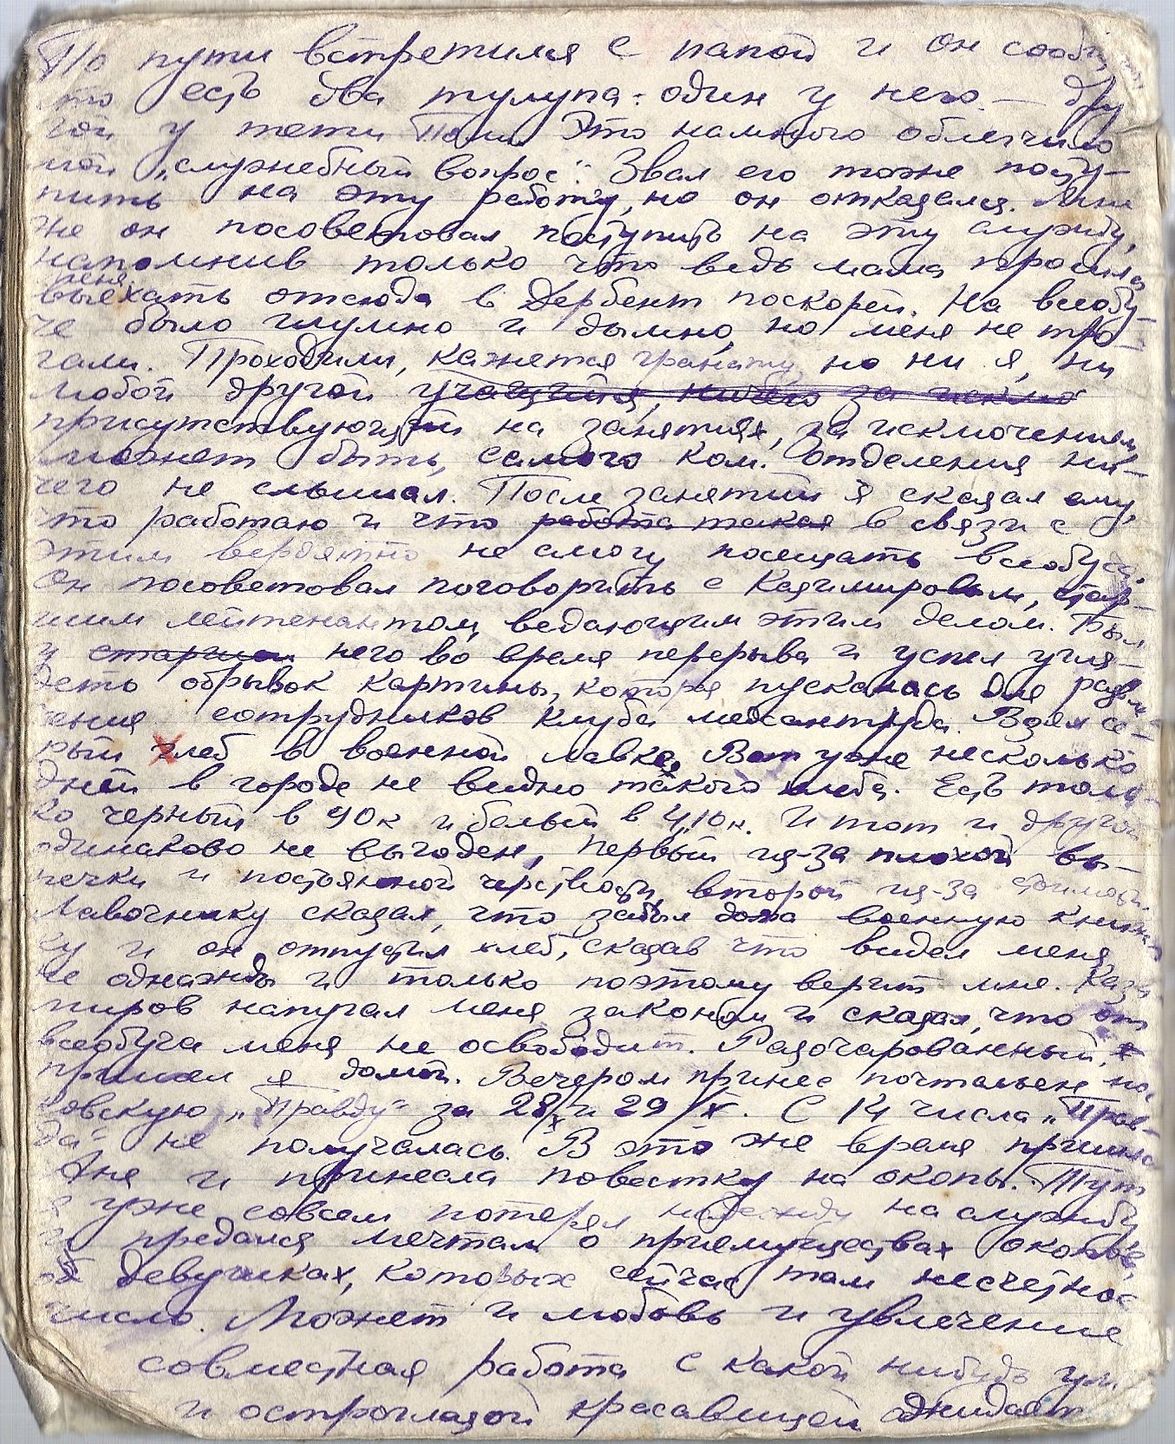 По пути встретился с папой и он сообщил
что есть два тулупа: один у него — дру-
гой у тети Поли. Это намного облегчило
мой „служебный вопрос". Звал его тоже посту-
пить на эту работу, но он отказался. Мне
же он посоветовал поступить на эту службу,
напомнив только что ведь мама просила
меня
выехать отсюда в Дербент поскорей. На всеобу-
че было шумно и дымно, но меня не тро-
гали. Проходили, кажется гранату, но ни я, ни
любой другой учащийся, ничего за исклю
присутствующий на занятиях, за исключением
может быть, самого ком. отделения ни-
чего не слышал. После занятий я сказал ему,
что работаю и что работа такая в связи с
этим вероятно не смогу посещать всеобуч.
Он посоветовал поговорить с Казимировым, стар-
шим лейтенантом, ведающим этим делом. Был
у старшим него во время перерыва и успел угля-
деть обрывок картины, которая пускалась для развле-
чения сотрудников клуба медсантруда. Взял се-
рый хлеб в военной лавке. Вот уже несколько
дней в городе не видно такого хлеба. Есть толь-
ко черный в 90к и белый в 4,10к. И тот и другой
одинаково не выгоден, первый из-за плохой вы-
печки и постоянной черствости, второй из-за стоимости.
Лавочнику сказал, что забыл дома военную книж-
ку и он отпустил хлеб, сказав что видел меня
не однажды и только поэтому верит мне. Кази-
миров напугал меня законом и сказал, что от
всеобуча меня не освободит. Разочарованный,
пришел я домой. Вечером принес почтальон
„Правду" за 28/X и 29/X. С 14 числа „Прав-
да" не получалась. В это же время пришла
и принесла повестку на окопы. Тут
я уже совсем потерял надежду на службу
и предался мечтам о приемуществах окопов,
о девушках, которых сейчас там несчетное
число. Может и любовь и увлечение
совместная работа с какой нибудь
и остроглазой красавицей ожидает